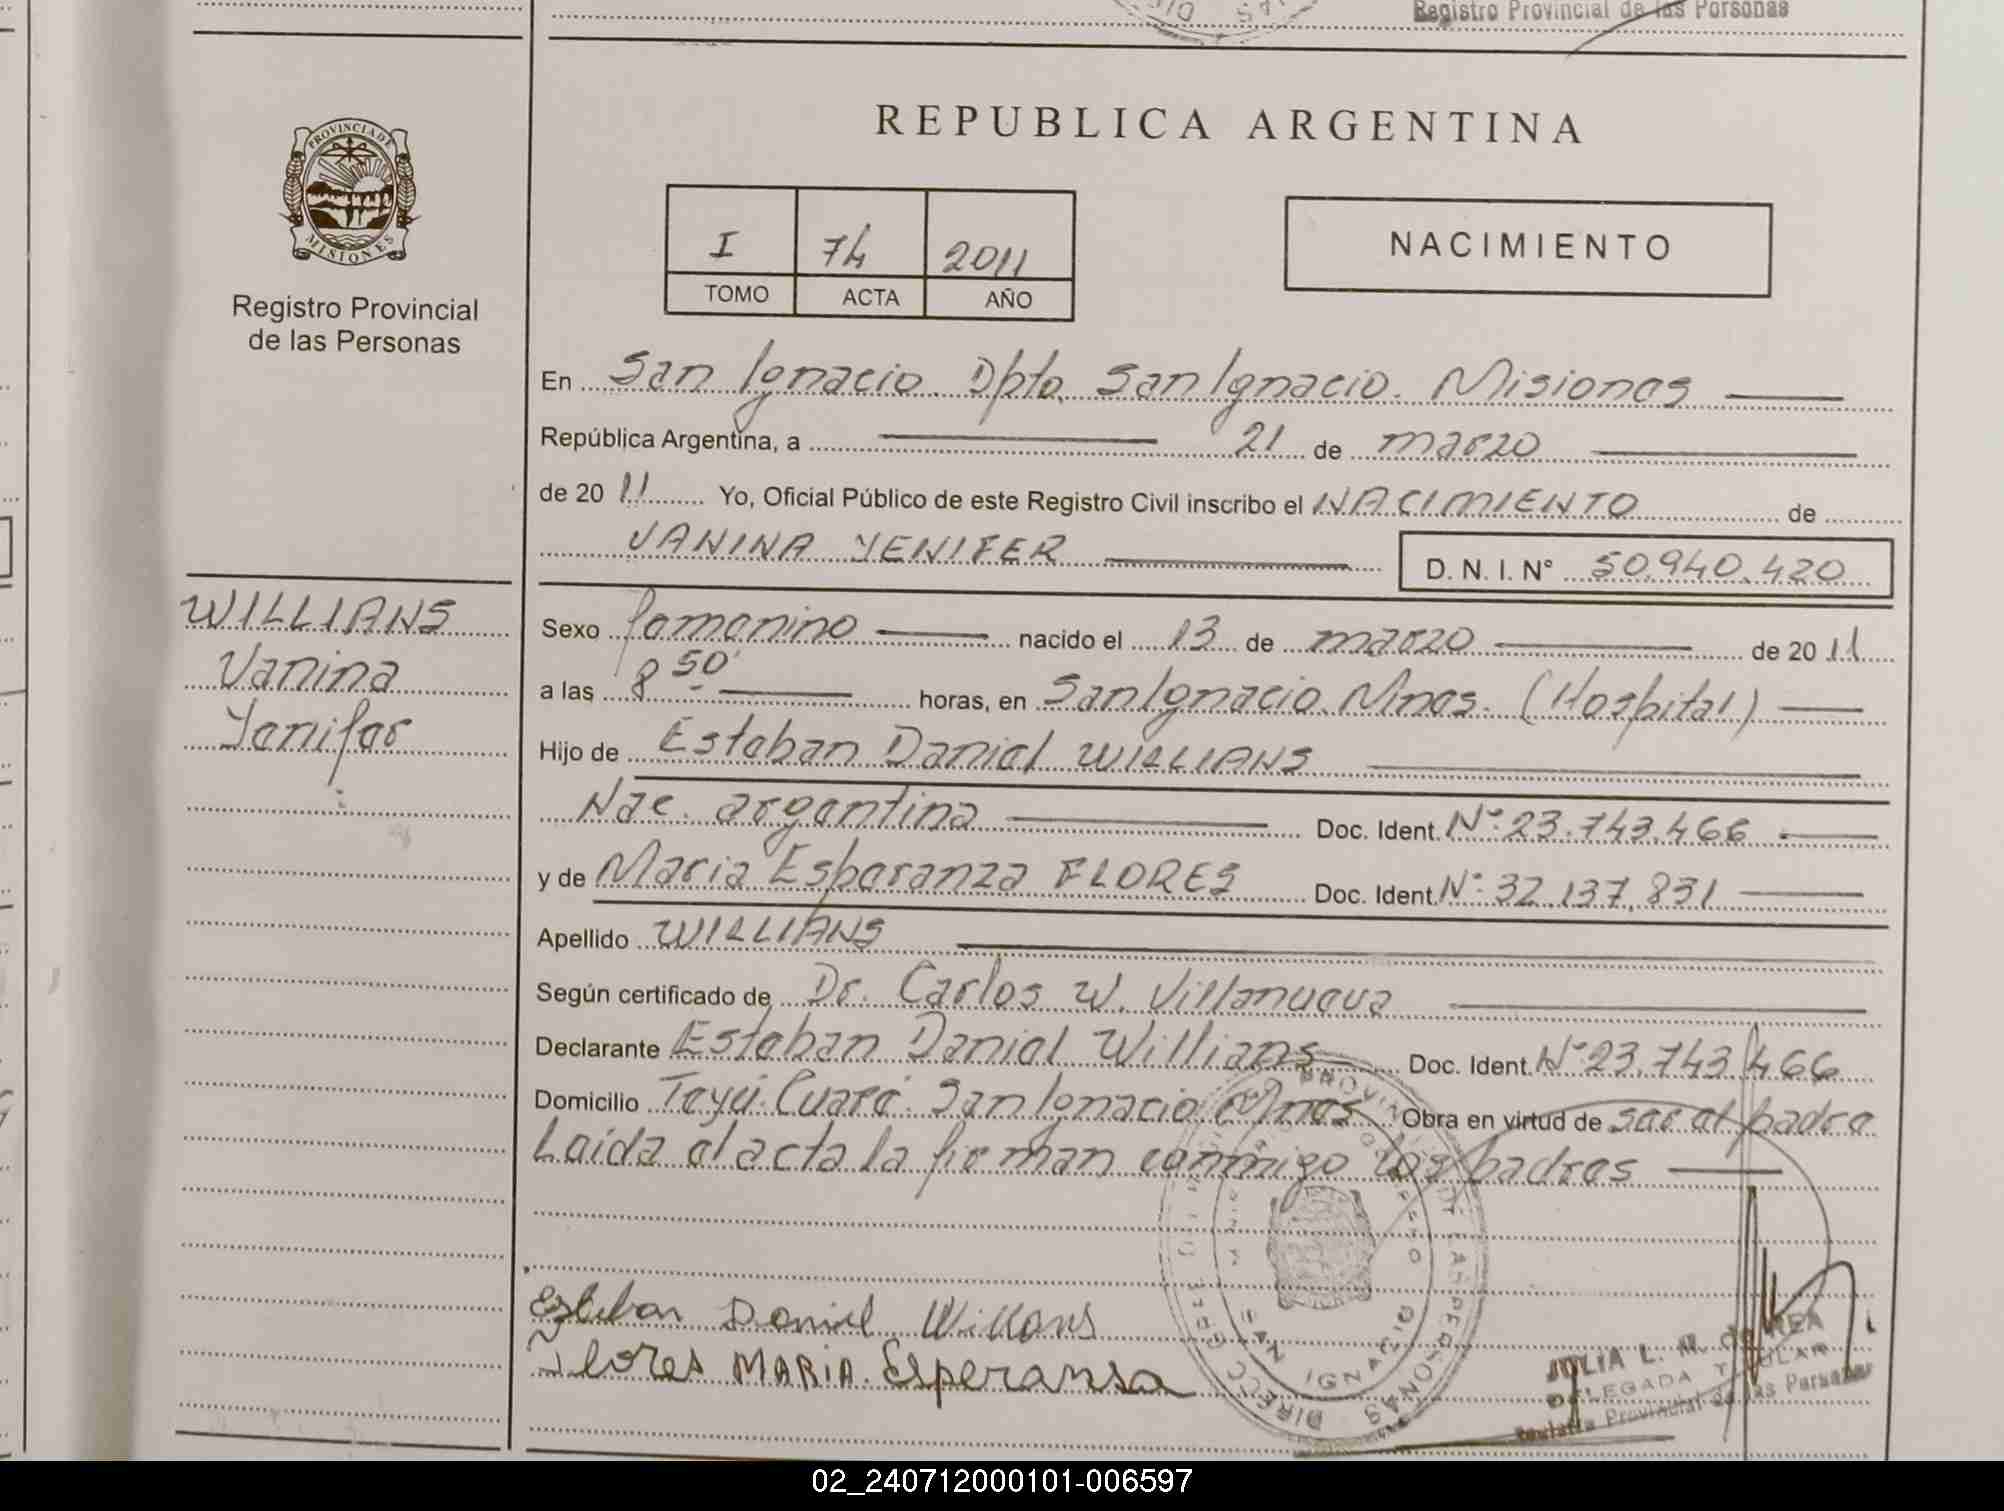 Registro Provincial de las Personas
PROVINCIA DE
MISIONES
Registro Provincial
de las Personas
REPUBLICA ARGENTINA
I 74 2011
TOMO ACTA AÑO
NACIMIENTO
En San Ignacio. Dpto. San Ignacio. Misiones
República Argentina, a 21 de marzo
de 2011 Yo, Oficial Público de este Registro Civil inscribo el NACIMIENTO de
VANINA YENIFER D. N. I. N° 50.940.420
WILLIANS
Vanina
Yenifer
Sexo femenino nacido el 13 de marzo de 2011
a las 8 50' horas, en San Ignacio. Mnes. (Hospital)
Hijo de Esteban Daniel WILLIANS
Nac. argentina Doc. Ident. N°: 23.743.466
y de Maria Esperanza FLORES Doc. Ident. N°: 32.137.831
Apellido WILLIANS
Según certificado de Dr. Carlos W. Villanueva
Declarante Esteban Daniel Willians Doc. Ident. N° 23.743.466
Domicilio Teyú Cuaré. San Ignacio Mnes Obra en virtud de ser el padre
Leida el acta la firman conmigo los padres
Esteban Daniel Willians
Flores MARIA Esperansa
SAN IGNACIO
JULIA L. M. de REA
DELEGADA TITULAR
Registro Provincial de las Personas
02_240712000101-006597